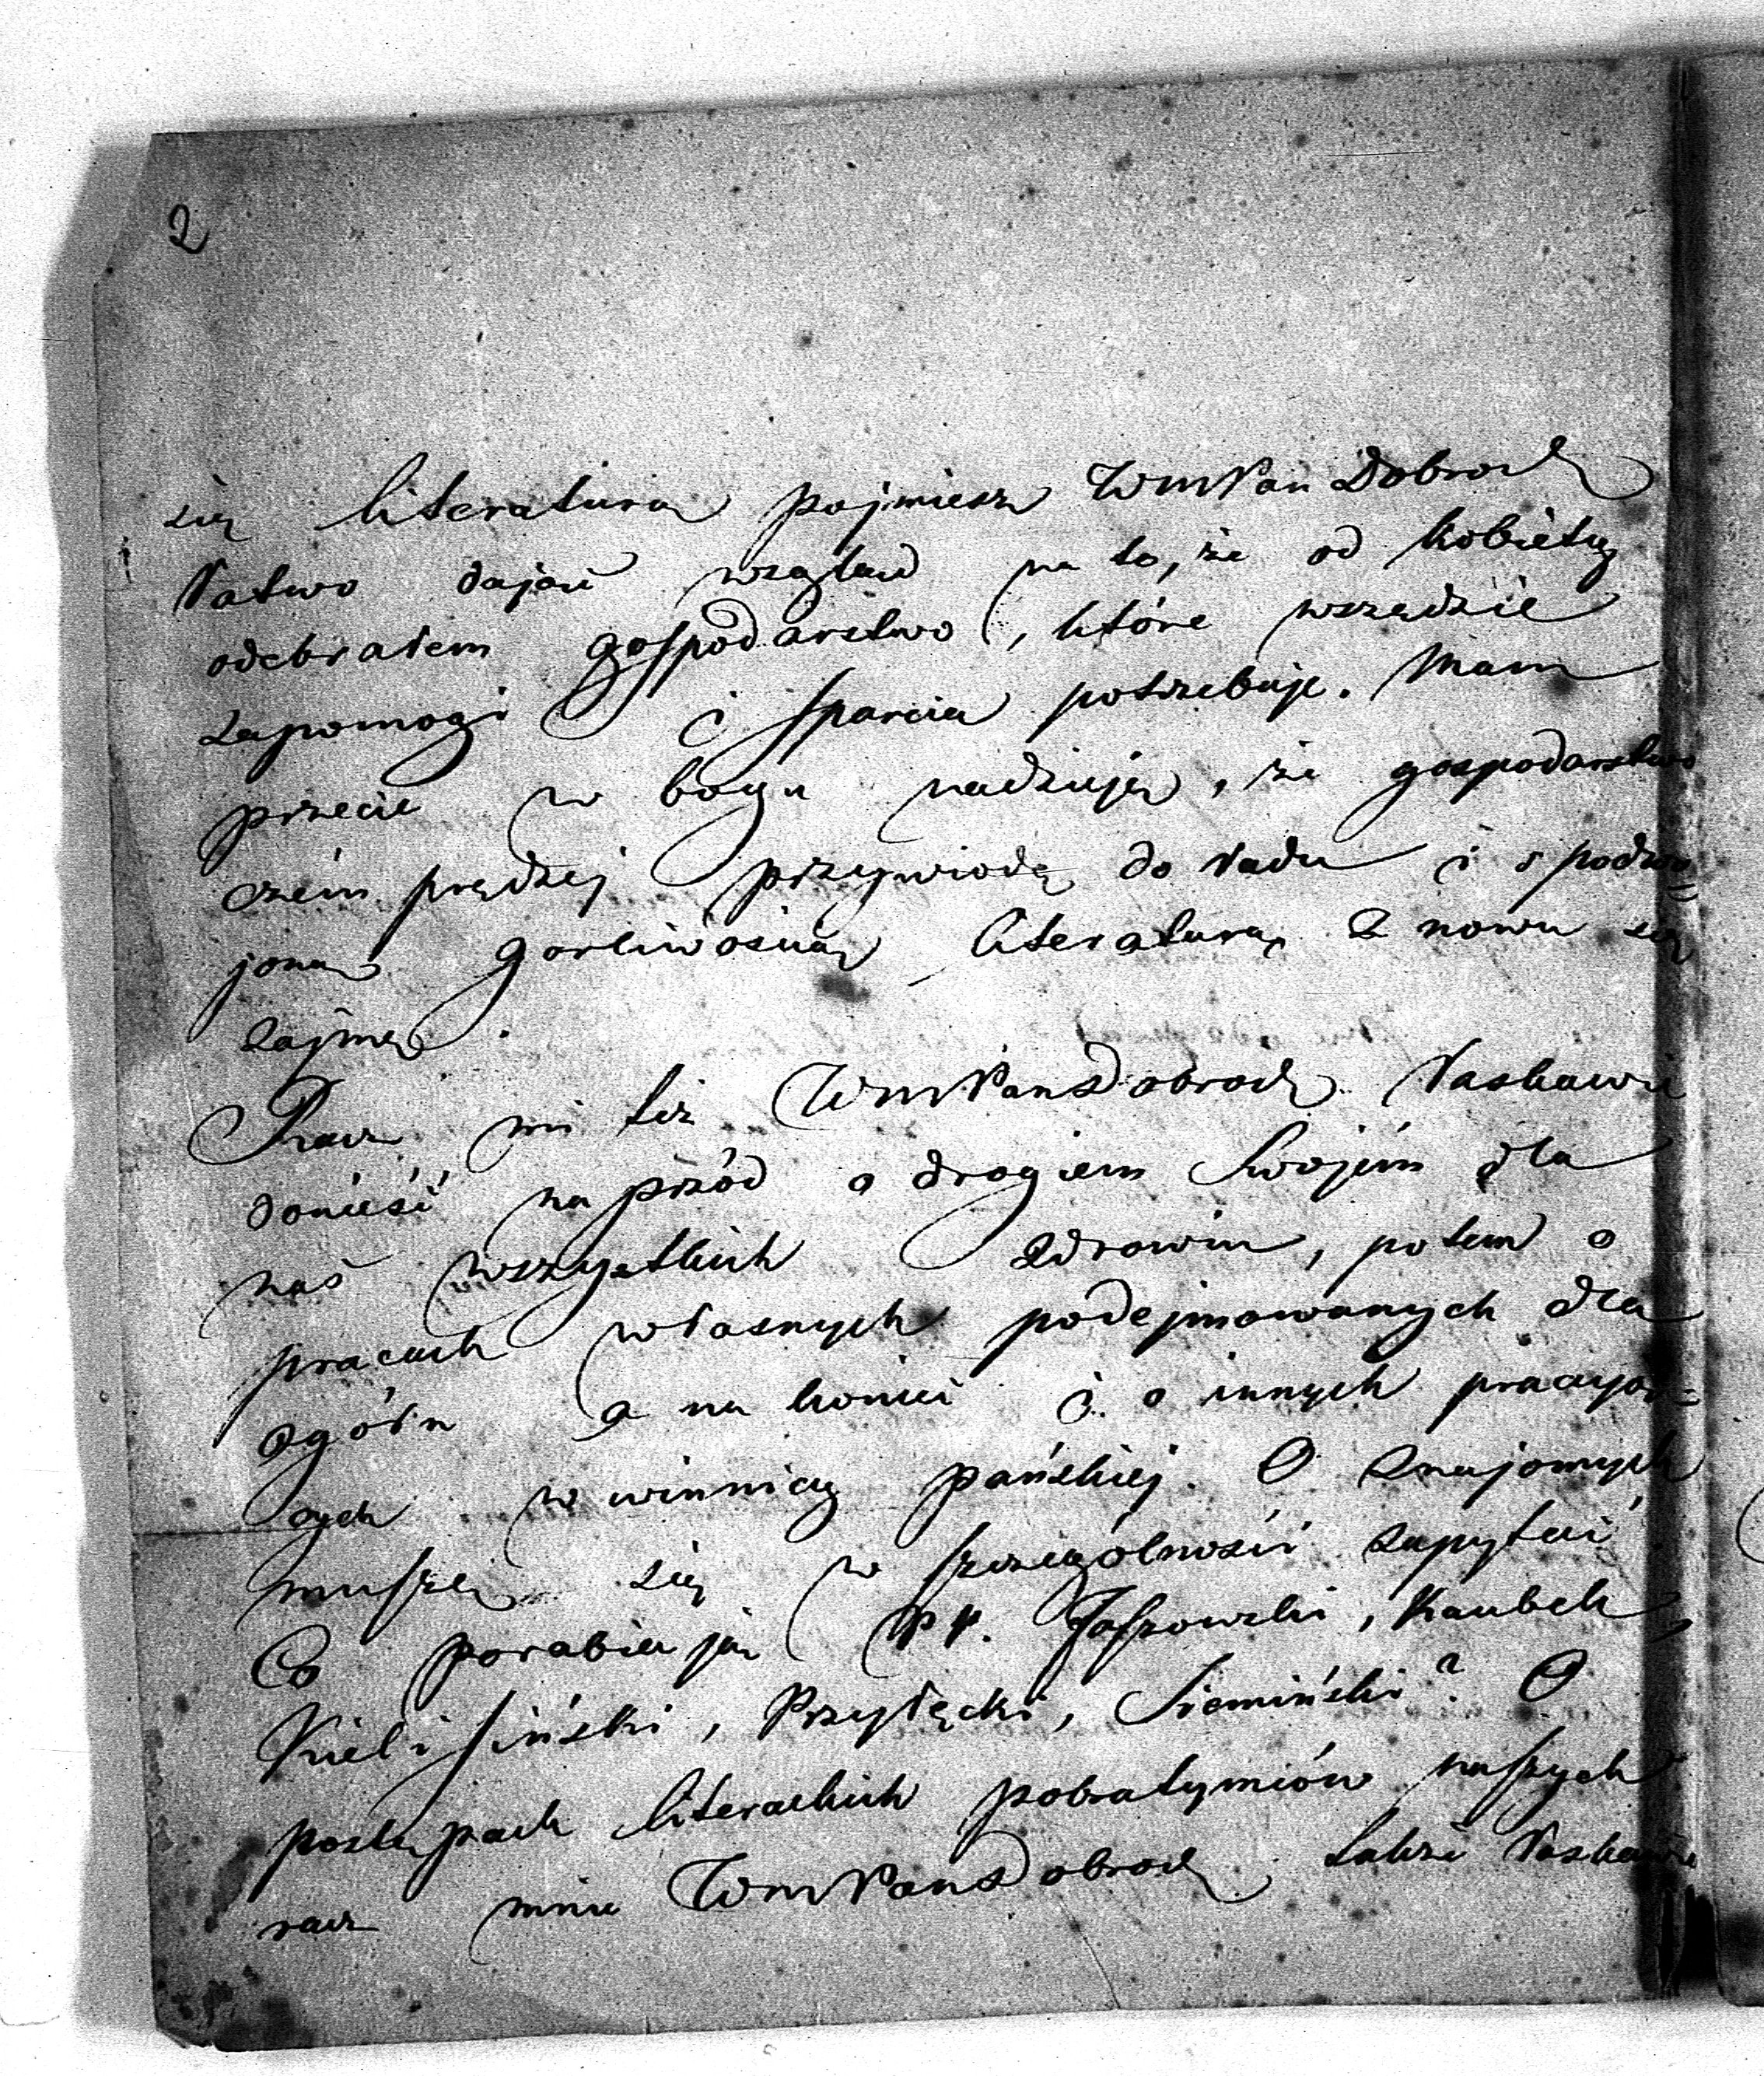 2
się literaturą pojmiesz WmPan Dobrodz
łatwo dając wzgląd na to, że od kobiety
odebrałem gospodarstwo, które wszędzie
zapomogi i sparcia potrzebuje. Mam
przecie w bogu nadzieję, że gospodarstwo
czém prędzej przywiodę do ładu i s podwo=
joną gorliwością literaturą z nowu się
zajmę.
Racz mi też WmPanDobrodz łaskawie
donieść na przód o drogiem Swojém dla
nas wszystkich zdrowiu, potem o
pracach własnych podejmowanych dla
ogółu a na koniec i o innych pracują=
cych w winnicy pańskiej. O znajomych
muszę się w szczególności zapytać
Co porabiają pp. Jaszowski, Kaubek,
Kielisiński, Przyłęcki, Siemiński? O
postępach literackich pobratymców naszych
racz mnie WmPanDobrodz także łaskawie